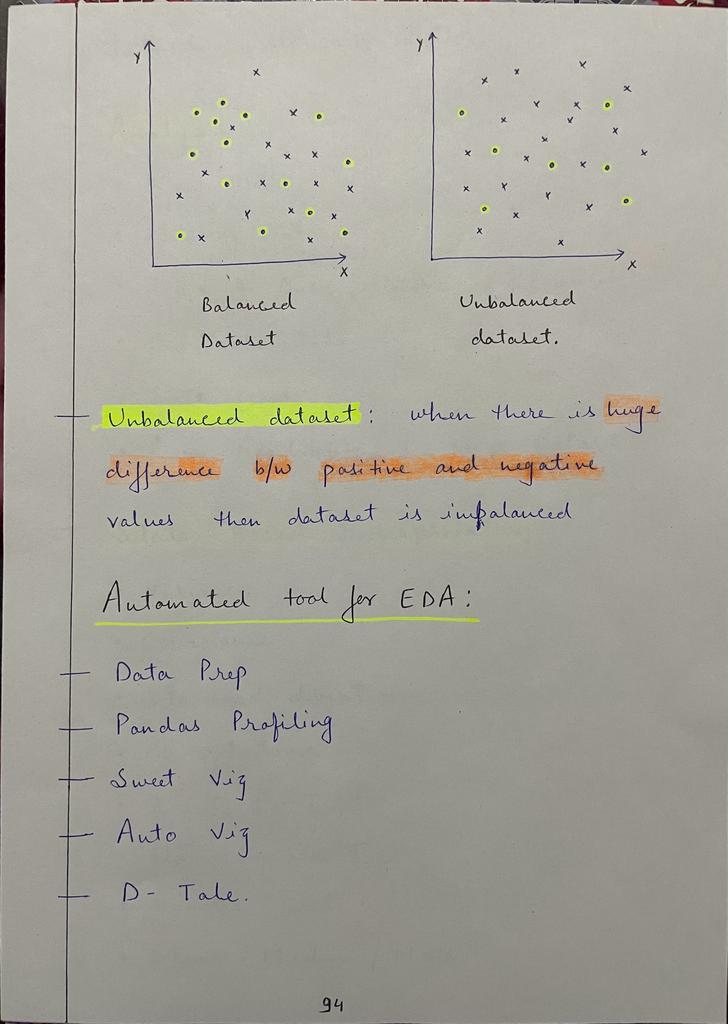 Y
Y
X
X
Balanced
Dataset
Unbalanced
dataset.
Unbalanced dataset: when there is huge
difference b/w positive and negative
values then dataset is imbalanced
Automated tool for EDA:
Data Prep
Pandas Profiling
Sweet Viz
Auto Viz
D- Tale.
94